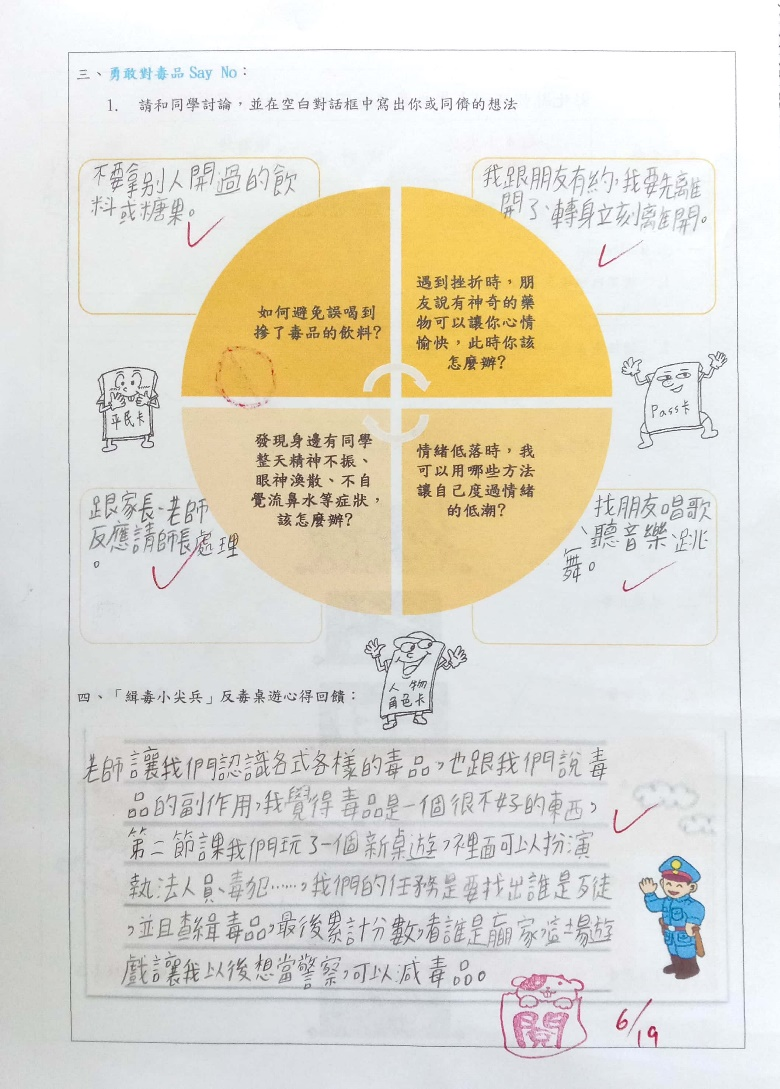 三、勇敢對毒品 Say No：
1. 請和同學討論，並在空白對話框中寫出你或同儕的想法
不要拿別人開過的飲
料或糖果。
我跟朋友有約，我要先離
開了、轉身立刻離開。
如何避免誤喝到
摻了毒品的飲料？
遇到挫折時，朋
友說有神奇的藥
物可以讓你心情
愉快，此時你該
怎麼辦？
平民卡
Pass卡
發現身邊有同學
整天精神不振、
眼神渙散、不自
覺流鼻水等症狀，
該怎麼辦？
情緒低落時，我
可以用哪些方法
讓自己度過情緒
的低潮？
跟家長、老師
反應請師長處理
。
找朋友唱歌
、聽音樂、跳
舞。
人物
角色卡
四、「緝毒小尖兵」反毒桌遊心得回饋：
老師讓我們認識各式各樣的毒品，也跟我們說毒
品的副作用，我覺得毒品是一個很不好的東西，
第二節課我們玩了一個新桌遊，裡面可以扮演
執法人員、毒犯……，我們的任務是要找出誰是歹徒
，並且查緝毒品，最後累計分數，看誰是贏家，這場遊
戲讓我以後想當警察，可以減毒品。
閱
6/19